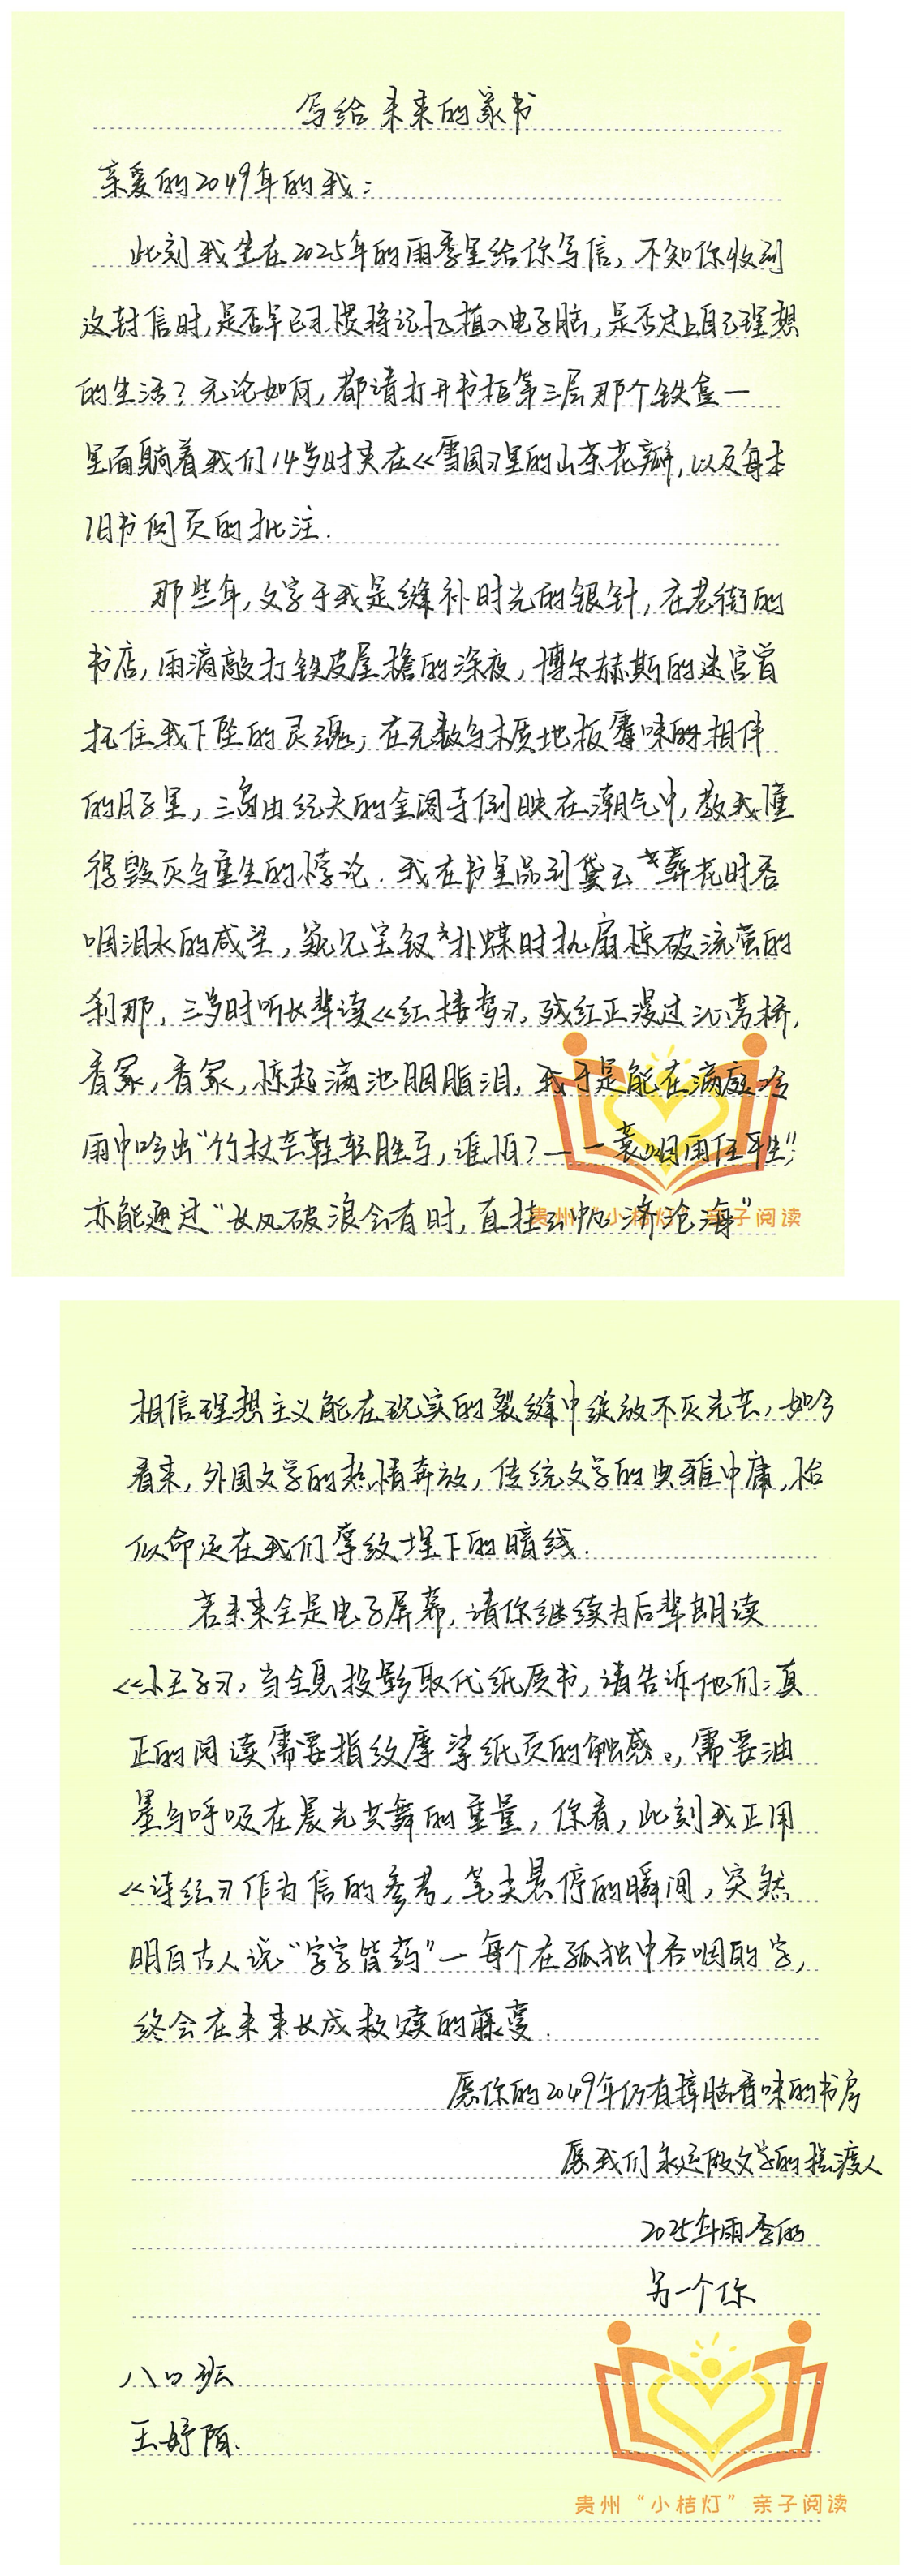 写给未来的家书
亲爱的2049年的我：
此刻我坐在2025年的雨季里给你写信，不知你收到
这封信时，是否早已习惯将记忆植入电子脑，是否过上自己理想
的生活？无论如何，都请打开书柜第三层那个铁盒一
里面躺着我们14岁时夹在《雪国》里的山茶花瓣，以及每本
旧书间页的批注.
那些年，文字于我是缝补时光的银针，在老街的
书店，雨滴敲打铁皮屋檐的深夜，博尔赫斯的迷宫曾
托住我下坠的灵魂；在无数与木质地板霉味的相伴
的日子里，三岛由纪夫的金阁寺倒映在潮气中，教我懂
得毁灭与重生的悖论.我在书里品到黛玉葬花时吞
咽泪水的咸涩，窥见宝钗扑蝶时执扇惊破流萤的
刹那，三岁时听长辈读《红楼梦》，残红正漫过沁芳桥，
香冢，香冢，惊起满池胭脂泪，我于是能在满庭冷
雨中吟出“竹杖芒鞋轻胜马，谁怕？一一蓑烟雨任平生”；
亦能通过“长风破浪会有时，直挂云帆济沧海”
贵州“小桔灯”亲子阅读
相信理想主义能在现实的裂缝中绽放不灭光芒，如今
看来，外国文学的热情奔放，传统文学的典雅中庸，恰
似命运在我们掌纹埋下的暗线.
若未来全是电子屏幕，请你继续为后辈朗读
《小王子》，当全息投影取代纸质书，请告诉他们：真
正的阅读需要指纹摩挲纸页的触感，需要油
墨与呼吸在晨光共舞的重量，你看，此刻我正用
《诗经》作为信的参考，笔尖悬停的瞬间，突然
明白古人说“字字皆药”一每个在孤独中吞咽的字，
终会在未来长成救赎的藤蔓.
愿你的2049年仍有樟脑香味的书房
愿我们永远做文学的摆渡人
2025年雨季的
另一个你
班
王妤陌.
贵州“小桔灯”亲子阅读